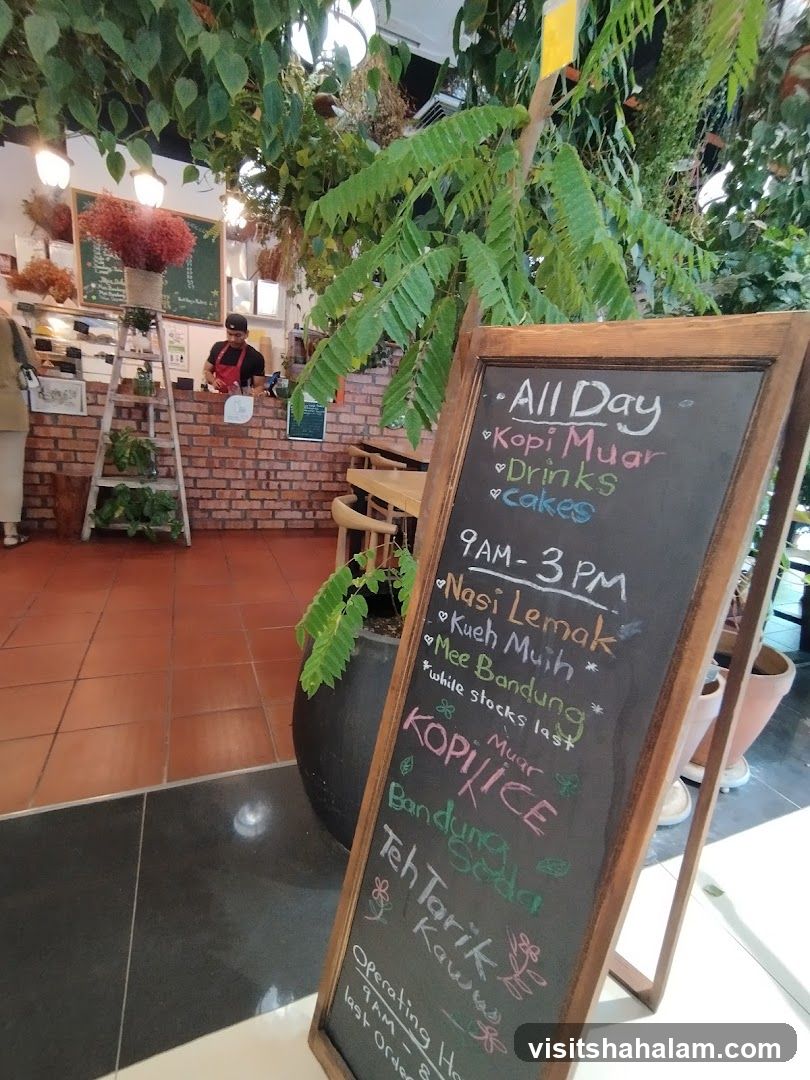 All Day
Kopi Muar
Drinks
cakes
9AM - 3PM
Nasi Lemak
Kueh Muih *
Mee Bandung *
*while stocks last
Muar
KOPI / ICE
Bandung
Soda
Teh Tarik
Kaww
Operating Ho
9AM - 8
last Order
visitshahalam.com